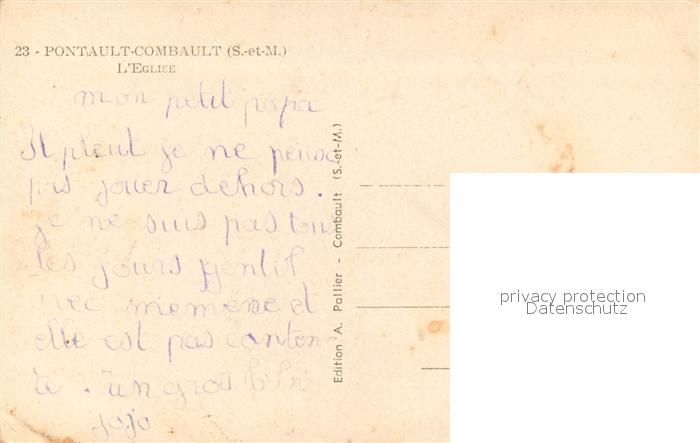 23 - PONTAULT-COMBAULT (S.-et-M.)
L'EGLISE
mon petit papa
Il pleut je ne peux
pas jouer dehors.
je ne suis pas tous
les jours gentil
avec mémène et
elle est pas conten-
te. un gros
jojo
Edition A. Pallier - Combault (S.-et-M.)
privacy protection
Datenschutz